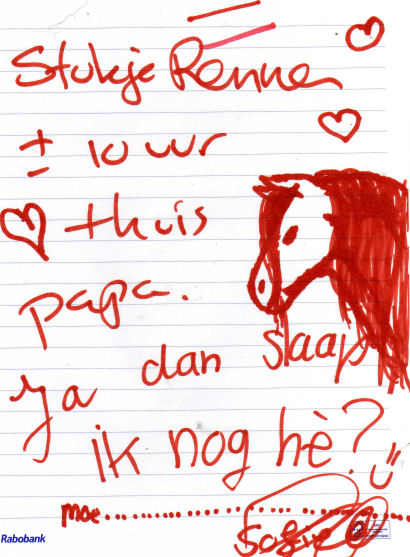 Stukje Rennen
± 10 uur
thuis
papa.
dan slaap
ja
ik nog hè?
moe
Sofie
Rabobank